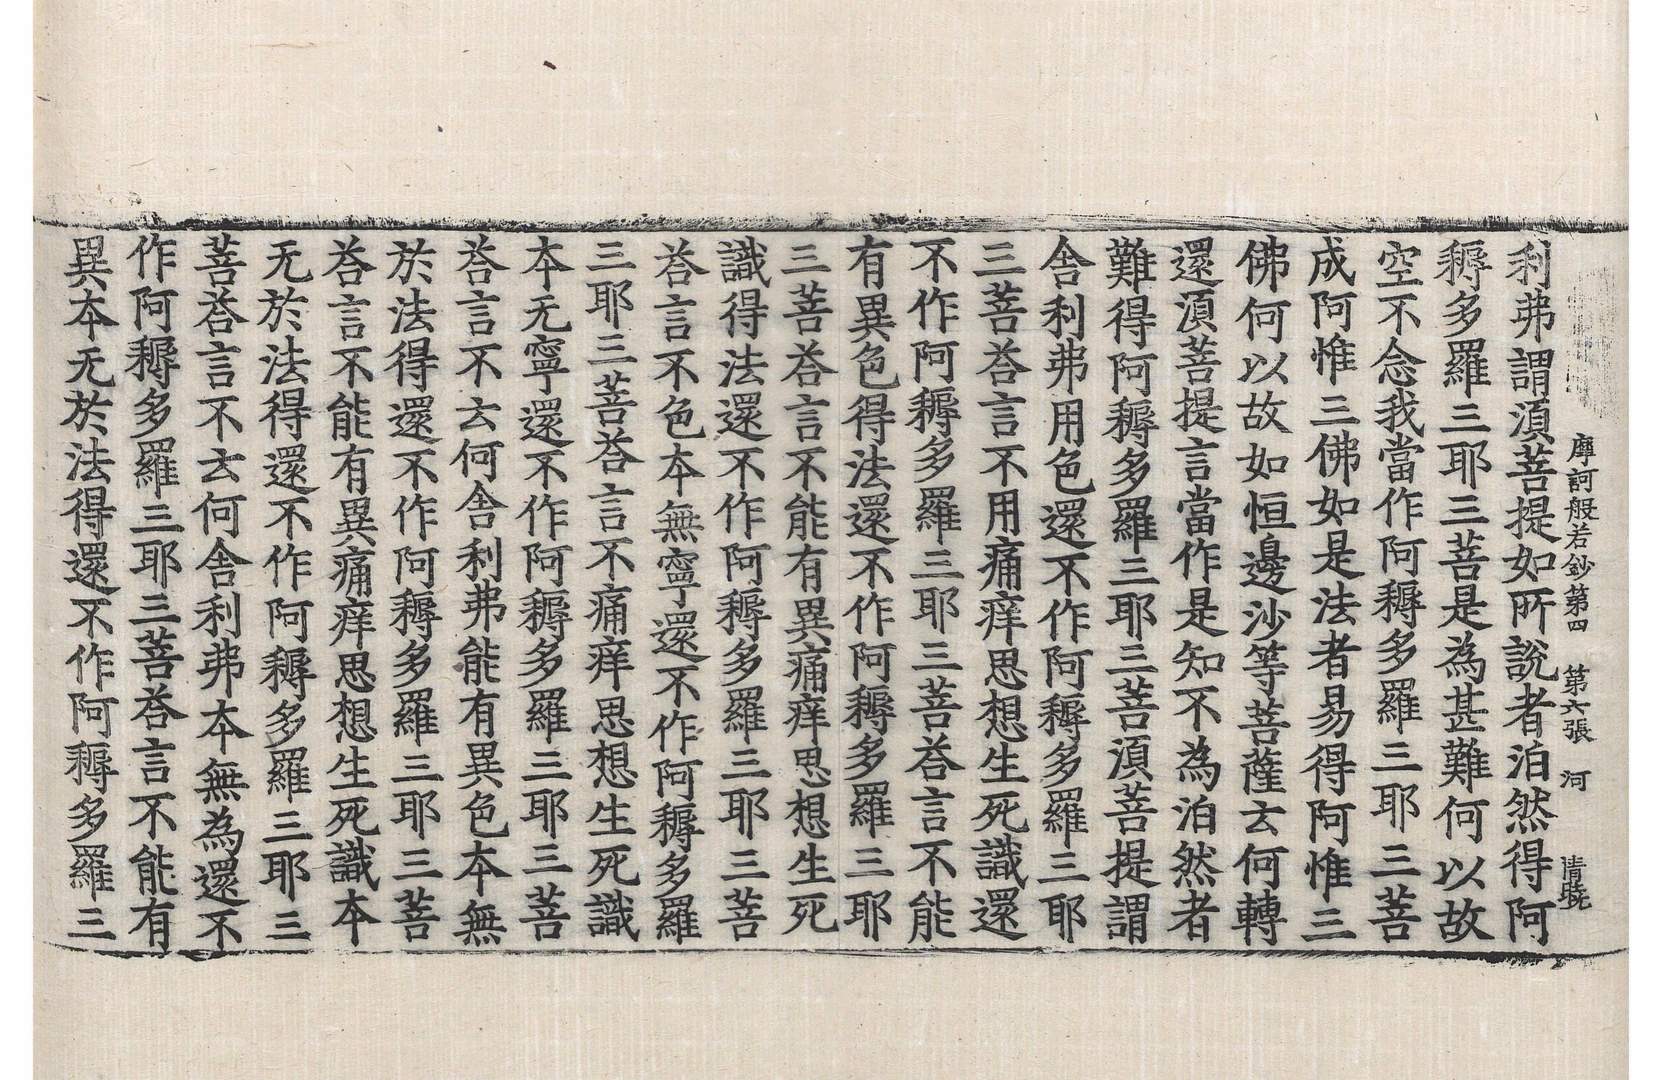 摩訶般若鈔第四 第六張 河 清曉
利弗謂湏菩提如所說者泊然得阿
耨多羅三耶三菩是為甚難何以故
空不念我當作阿耨多羅三耶三菩
成阿惟三佛如是法者易得阿惟三
佛何以故如恒邊沙等菩薩去何轉
還湏菩提言當作是知不為泊然者
難得阿耨多羅三耶三菩湏菩提謂
舍利弗用色還不作阿耨多羅三耶
三菩荅言不用痛痒思想生死識還
不作阿耨多羅三耶三菩荅言不能
有異色得法還不作阿耨多羅三耶
三菩荅言不能有異痛痒思想生死
識得法還不作阿耨多羅三耶三菩
荅言不色本無寧還不作阿耨多羅
三耶三菩荅言不痛痒思想生死識
本无寧還不作阿耨多羅三耶三菩
荅言不去何舍利弗能有異色本無
於法得還不作阿耨多羅三耶三菩
荅言不能有異痛痒思想生死識本
无於法得還不作阿耨多羅三耶三
菩荅言不去何舍利弗本無為還不
作阿耨多羅三耶三菩荅言不能有
異本无於法得還不作阿耨多羅三